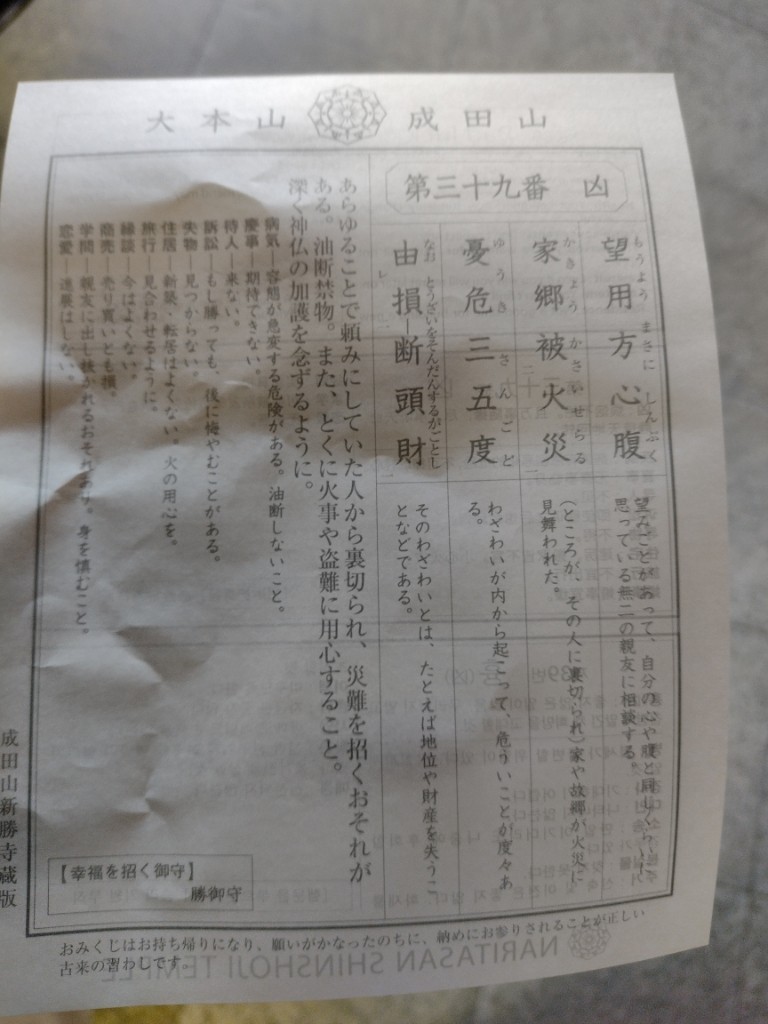 大本山 成田山
第三十九番 凶
望用方心腹
もうよう まさに しんぷく
家郷被火災
かきょう かさいせらる
憂危三五度
ゆうき さんごど
由損断頭財
なお とうざいをそんだんするがごとし
望みごとがあって、自分の心や腹と同じくらいに
思っている無二の親友に相談する。
(ところが、その人に裏切られ)家や故郷が火災に
見舞われた。
わざわいが内から起こって、危ういことが度々あ
る。
そのわざわいとは、たとえば地位や財産を失うこ
となどである。
あらゆることで頼みにしていた人から裏切られ、災難を招くおそれが
ある。油断禁物。また、とくに火事や盗難に用心すること。
深く神仏の加護を念ずるように。
病気―容態が急変する危険がある。油断しないこと。
慶事―期待できない。
待人―来ない。
訴訟―もし勝っても、後に悔やむことがある。
失物―見つからない。
住居―新築・転居はよくない。火の用心を。
旅行―見合わせるように。
縁談―今はよくない。
商売―売り買いとも損。
学問―親友に出し抜かれるおそれあり。身を慎むこと。
恋愛―進展はしない。
【幸福を招く御守】
勝御守
成田山新勝寺蔵版
おみくじはお持ち帰りになり、願いがかなったのちに、納めにお参りされることが正しい
古来の習わしです。
NARITASAN SHINSHOJI TEMPLE